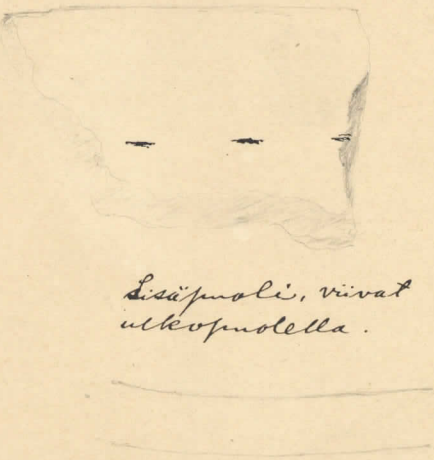 Lisäpuoli, viivat
ulkopuolella.